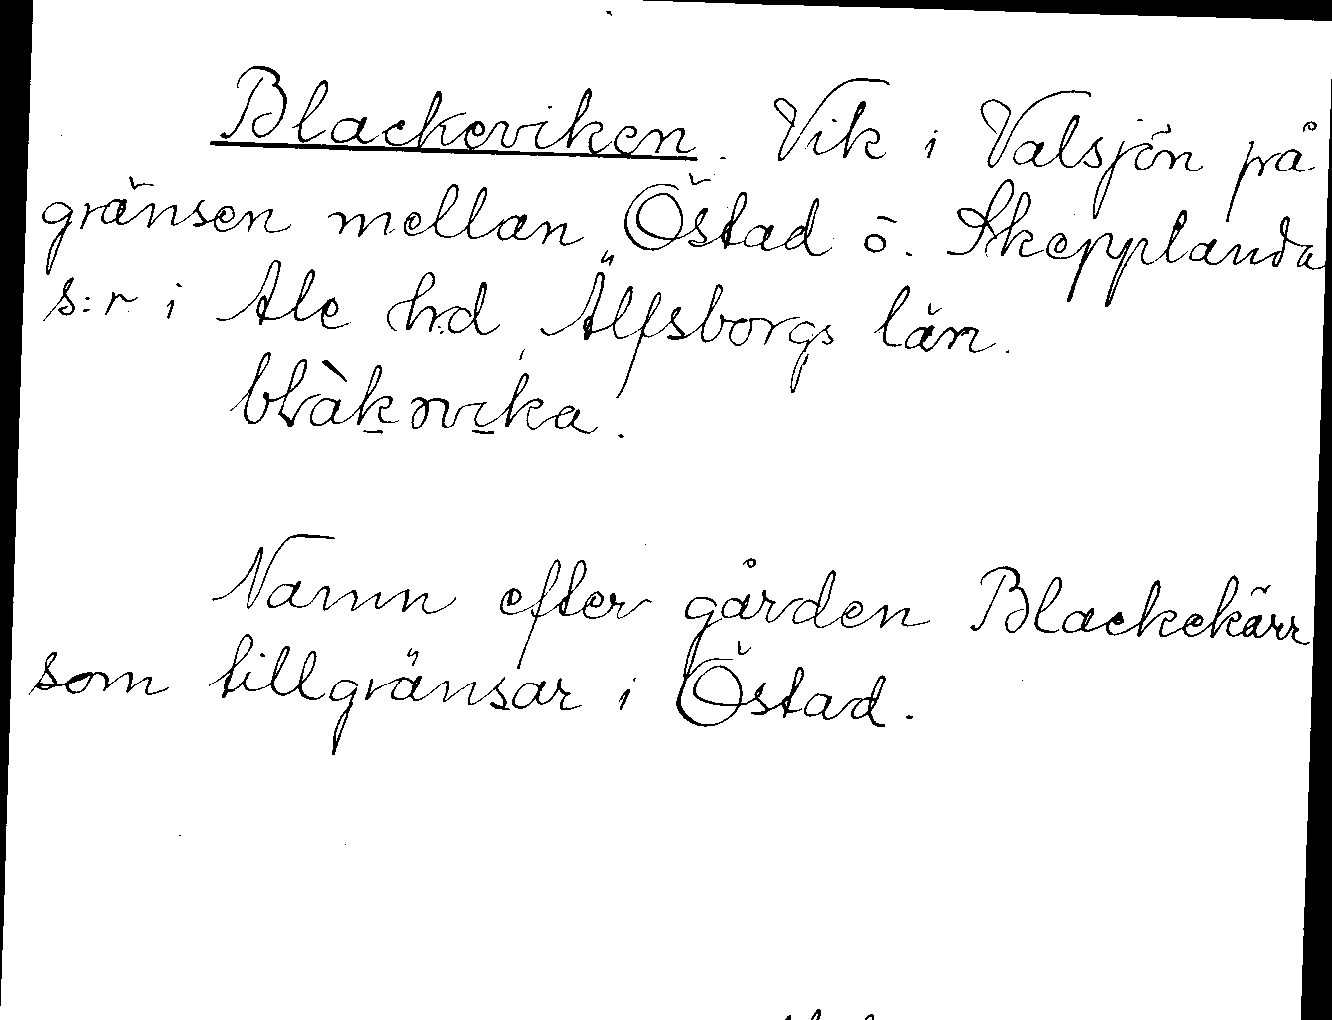 Blackeviken. Vik i Valsjön på
gränsen mellan Östad o. Skepplanda
s:r i Ale hd, Älfsborgs län.
Namn efter gården Blackekärr
som tillgränsar i Östad.